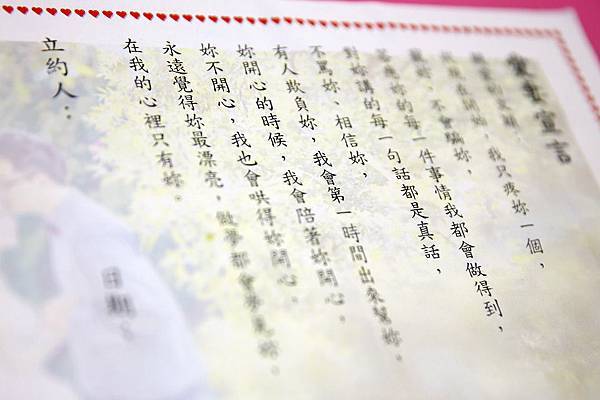 愛妻宣言
我只疼妳一個，
在開始，
寵妳、不會騙妳，
答應妳的每一件事情我都會做得到，
對妳講的每一句話都是真話，
不罵妳、相信妳，
有人欺負妳，我會第一時間出來幫妳。
妳開心的時候，我會陪著妳開心，
妳不開心，我也會哄得妳開心，
永遠覺得妳最漂亮，做夢都會夢見妳。
在我的心裡只有妳。
立約人：
日期：